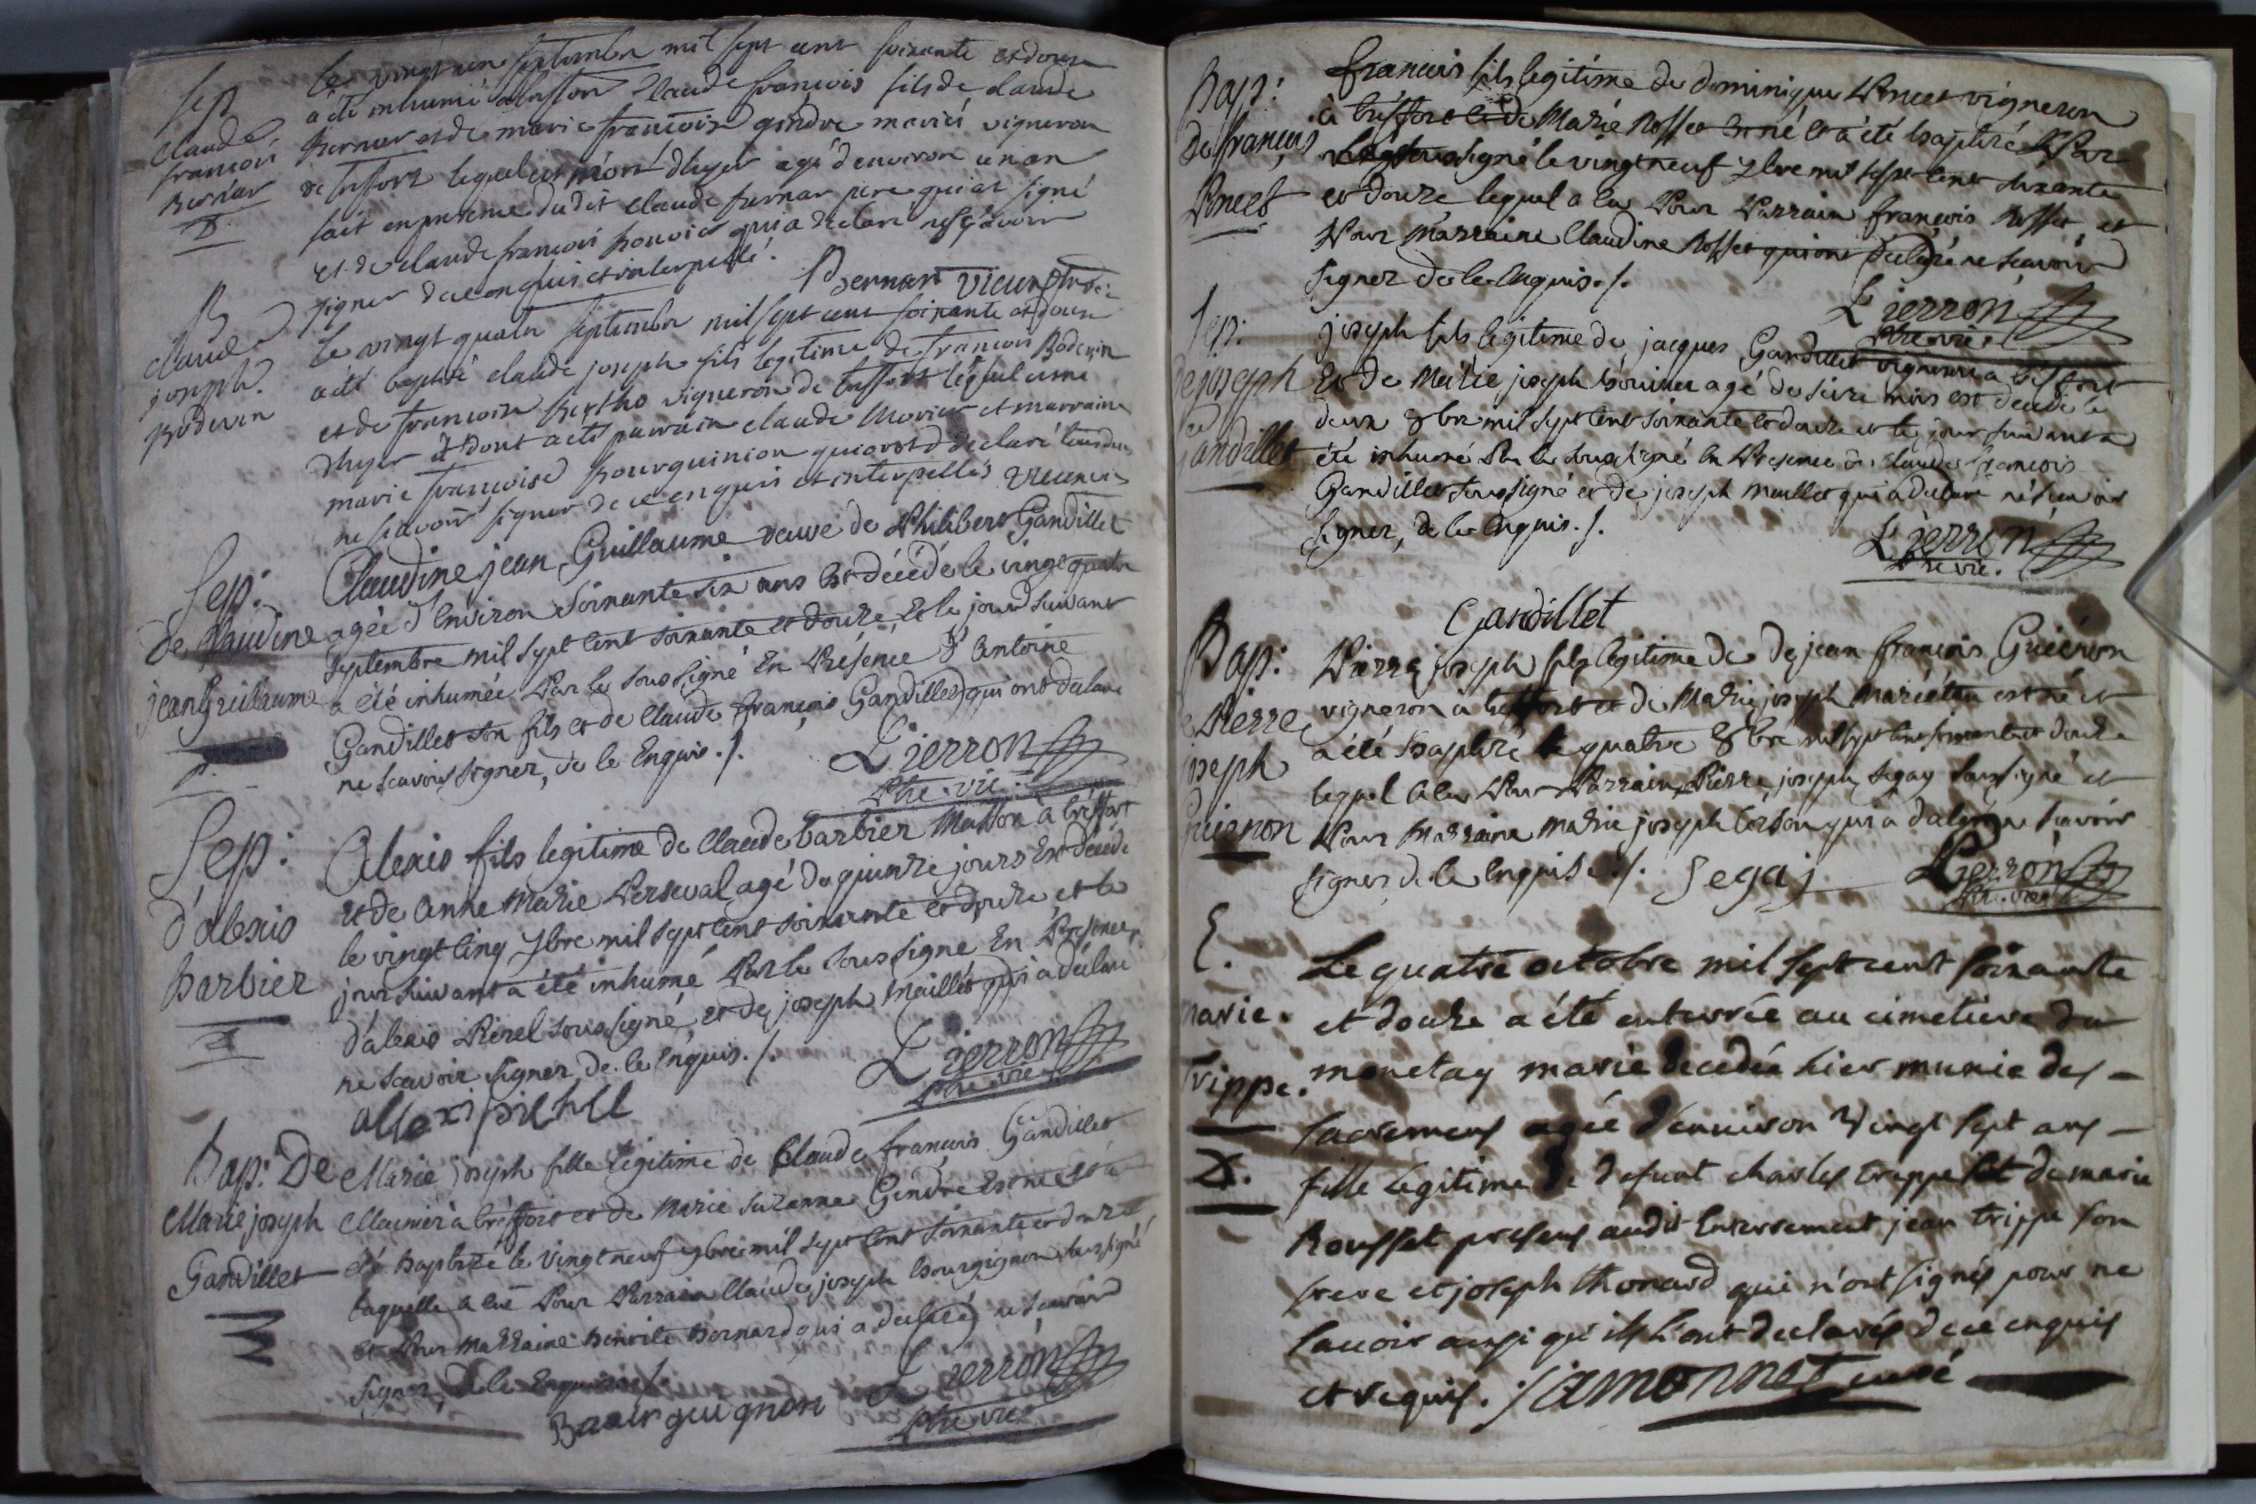 Sep
Claude
francois
Bernar
D.
Le vingt un septembre mil sept cent soixante et douze
a été inhumé a tresfort Claude francois fils de claude
Bernar et de marie francoise gindre mariés vigneron
de tresfort lequel est mort d'hyer agé d'environ un an
fait en presence dudit claude bernar pere qui a signé
et de claude francois qui a déclaré ne sçavoir
signer de ce enquis et interpellé.
Bernart
B
claude
joseph
Boderin
Le vingt quatre septembre mil sept cent soixante et douze
a été baptisé claude joseph fils legitime de francois
et de francoise Bertho vigneron de tresfort lequel est né
d'hyer et dont a été parrain claude et marraine
marie francoise bourguinion qui ont déclaré tous deux
ne sçavoir signer de ce enquis et interpellés
Sep:
de Claudine
jean Guillaume
Claudine jean Guillaume veuve de Philibert Gandillet
agée d'environ soixante six ans est décédé le vingt quatre
septembre mil sept cent soixante et douze, et le jour suivant
a été inhumée Par le soussigné En Présence d'Antoine
Gandillet son fils et de Claude françois Gandillet qui ont déclaré
ne scavoir signer, de ce Enquis ./.
Pierron
Ptre vic.
Sep:
d'alexis
barbier
Alexis fils legitime de Claude barbier Masson à tresfort
et de Anne Marie Perseval agé de quinze jours Est décédé
le vingt cinq 7bre mil sept cent soixante et douze, et le
jour suivant a été inhumé Par le sous signé En Presence
d'alexis soussigné, et de joseph Maillet qui a déclaré
ne scavoir signer de ce enquis ./.
Pierron
Ptre vic.
Bap: De
Marie joseph
Gandillet
Marie joseph fille légitime de Claude françois Gandillet
Meunier à tréffort et de Marie Suzanne Gindre Est née et a
été baptizé le vingt neuf 7bre mil sept cent soixante et douze
laquelle a eu Pour Parrain Claude joseph bourgignon soussigné
et Pour Marraine benoite bernard qui a declaré ne scavoir
signer, de ce Enquise ./.
Pierron
Baour guignon
Ptre vic.
Bap:
De françois
Poncet
francois fils legitime de dominique Poncet vigneron
à tréffort et de Marie Rosset Est né et a été baptizé Par
le soussigné le vingt neuf 7bre mil sept cent soixante
et douze lequel a eu Pour Parrain francois Rosset, et
Pour Marraine Claudine Rosset qui ont déclaré ne scavoir
signer de ce enquis ./.
Pierron
Ptre vic.
Sep:
de joseph
Gandillet
joseph fils legitime de jacques Gandillet vigneron à tresfort
Et de Marie joseph agé de seize mois est decedé le
deux 8bre mil sept cent soixante et douze et le jour suivant a
été inhumé Par le soussigné En Presence de Claude francois
Gandillet soussigné et de joseph Maillet qui a declaré ne scavoir
signer, de ce enquis ./.
Pierron
Ptre vic.
Gandillet
Bap:
de Pierre
joseph
Guienon
Pierre joseph fils legitime de de jean francois Guienon
vigneron à tréffort et de Marie joseph est né et
a été baptizé le quatre 8bre mil sept cent soixante et douze
lequel a eu Pour Parrain Pierre joseph Segay soussigné et
Pour Marraine Marie joseph qui a declaré ne scavoir
signer, de ce enquise ./. Segaj
Pierron
Ptre vic.
E.
Marie
Trippe.
D.
Le quatre octobre mil sept cent soixante
et douze a été enterrée au cimetiere du
monetay marie decedée hier munie des
sacremens agée d'environ vingt sept ans
fille legitime de defunt charles trippe et de marie
Rousset presens audit Enterrement jean trippe son
frere et joseph thonard qui n'ont signés pour ne
savoir ainsi qu'ils l'ont declarés de ce enquis
et requis. jamonnet curé